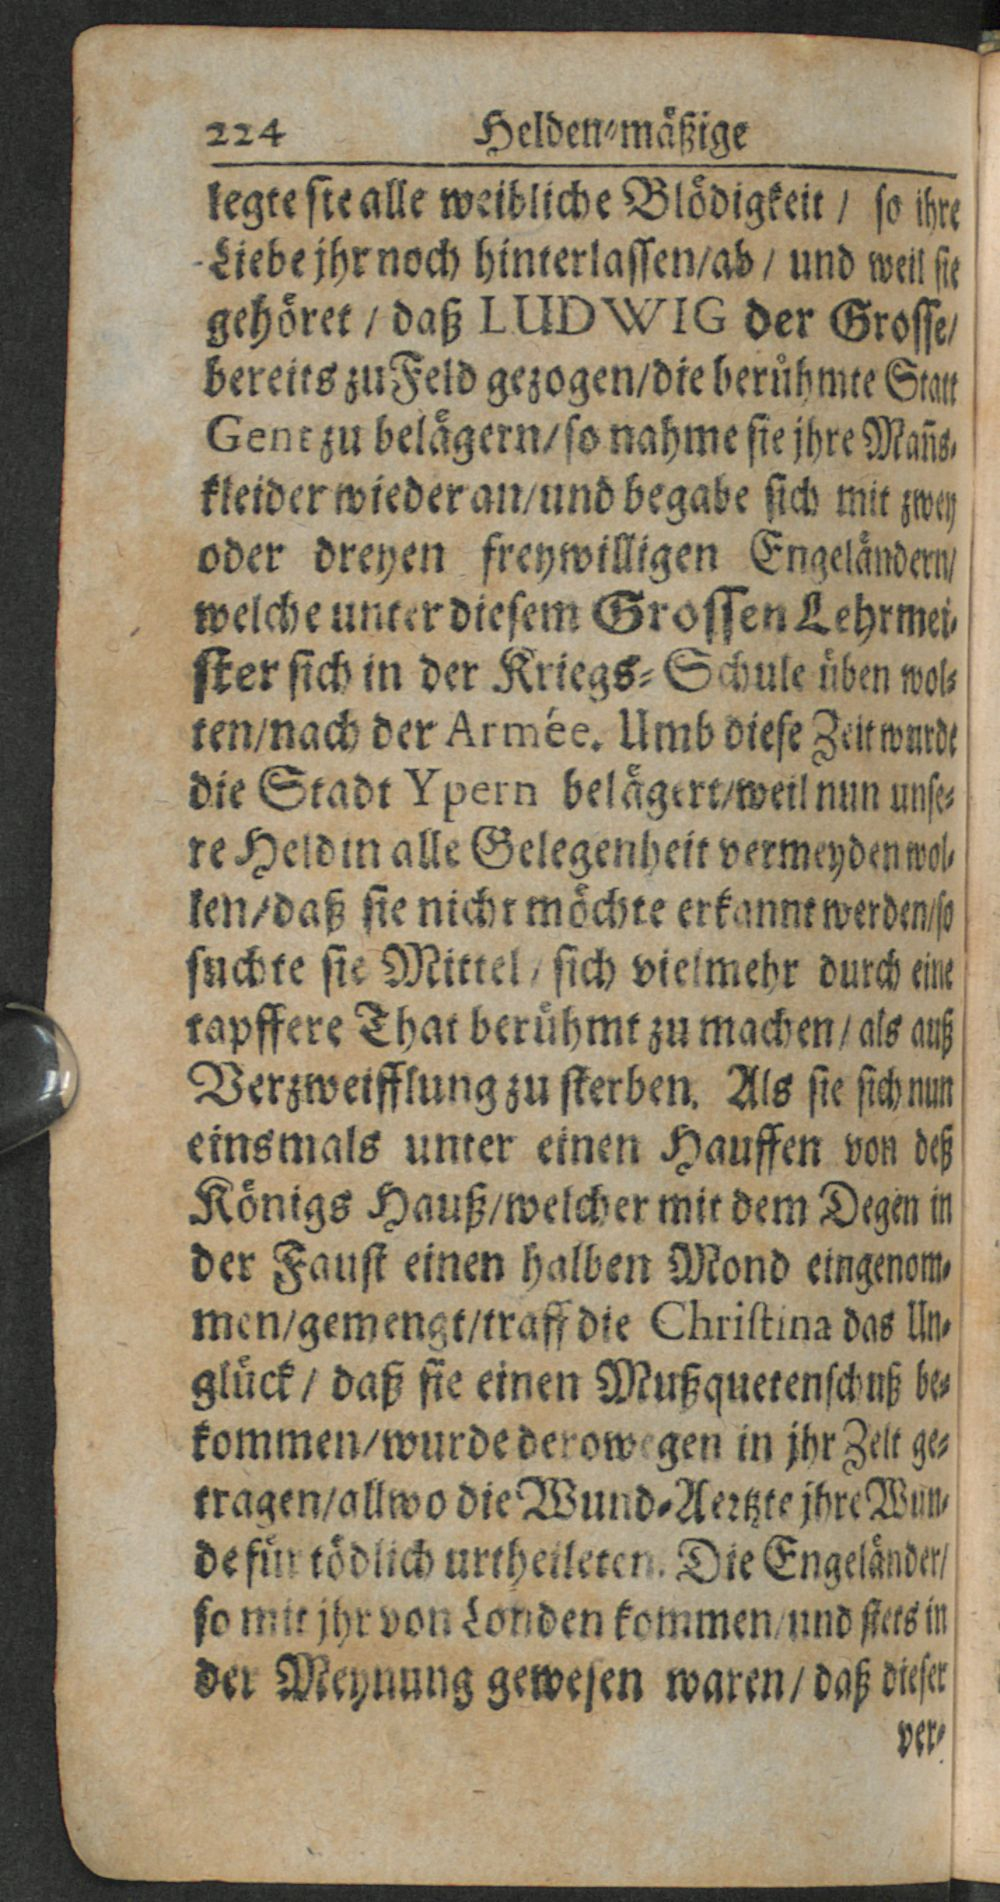 224 Helden-mäßige
legte sie alle weibliche Blödigkeit / so ihre
Liebe jhr noch hinterlassen/ab / und weil sie
gehöret / daß LUDWIG der Grosse/
bereits zu Feld gezogen/die berühmte Statt
Gent zu belägern/so nahme sie jhre Mañs-
kleider wieder an/und begabe sich mit zwey
oder dreyen freywilligen Engeländern/
welche unter diesem Grossen Lehrmei-
ster sich in der Kriegs-Schule üben wol-
ten/nach der Armée. Umb diese Zeit wurde
die Stadt Ypern belägert/weil nun unse-
re Heldin alle Gelegenheit vermeyden wol-
len/daß sie nicht möchte erkannt werden/so
suchte sie Mittel / sich vielmehr durch eine
tapffere That berühmt zu machen / als auß
Verzweifflung zu sterben. Als sie sich nun
einsmals unter einen Hauffen von deß
Königs Hauß/welcher mit dem Degen in
der Faust einen halben Mond eingenom-
men/gemengt/traff die Christina das Un-
glück / daß sie einen Mußquetenschuß be-
kommen/wurde derowegen in jhr Zelt ge-
tragen/allwo die Wund-Aertzte jhre Wun-
de für tödlich urtheileten. Die Engeländer/
so mit jhr von Londen kommen/und stets in
der Meynung gewesen waren / daß dieser
ver-